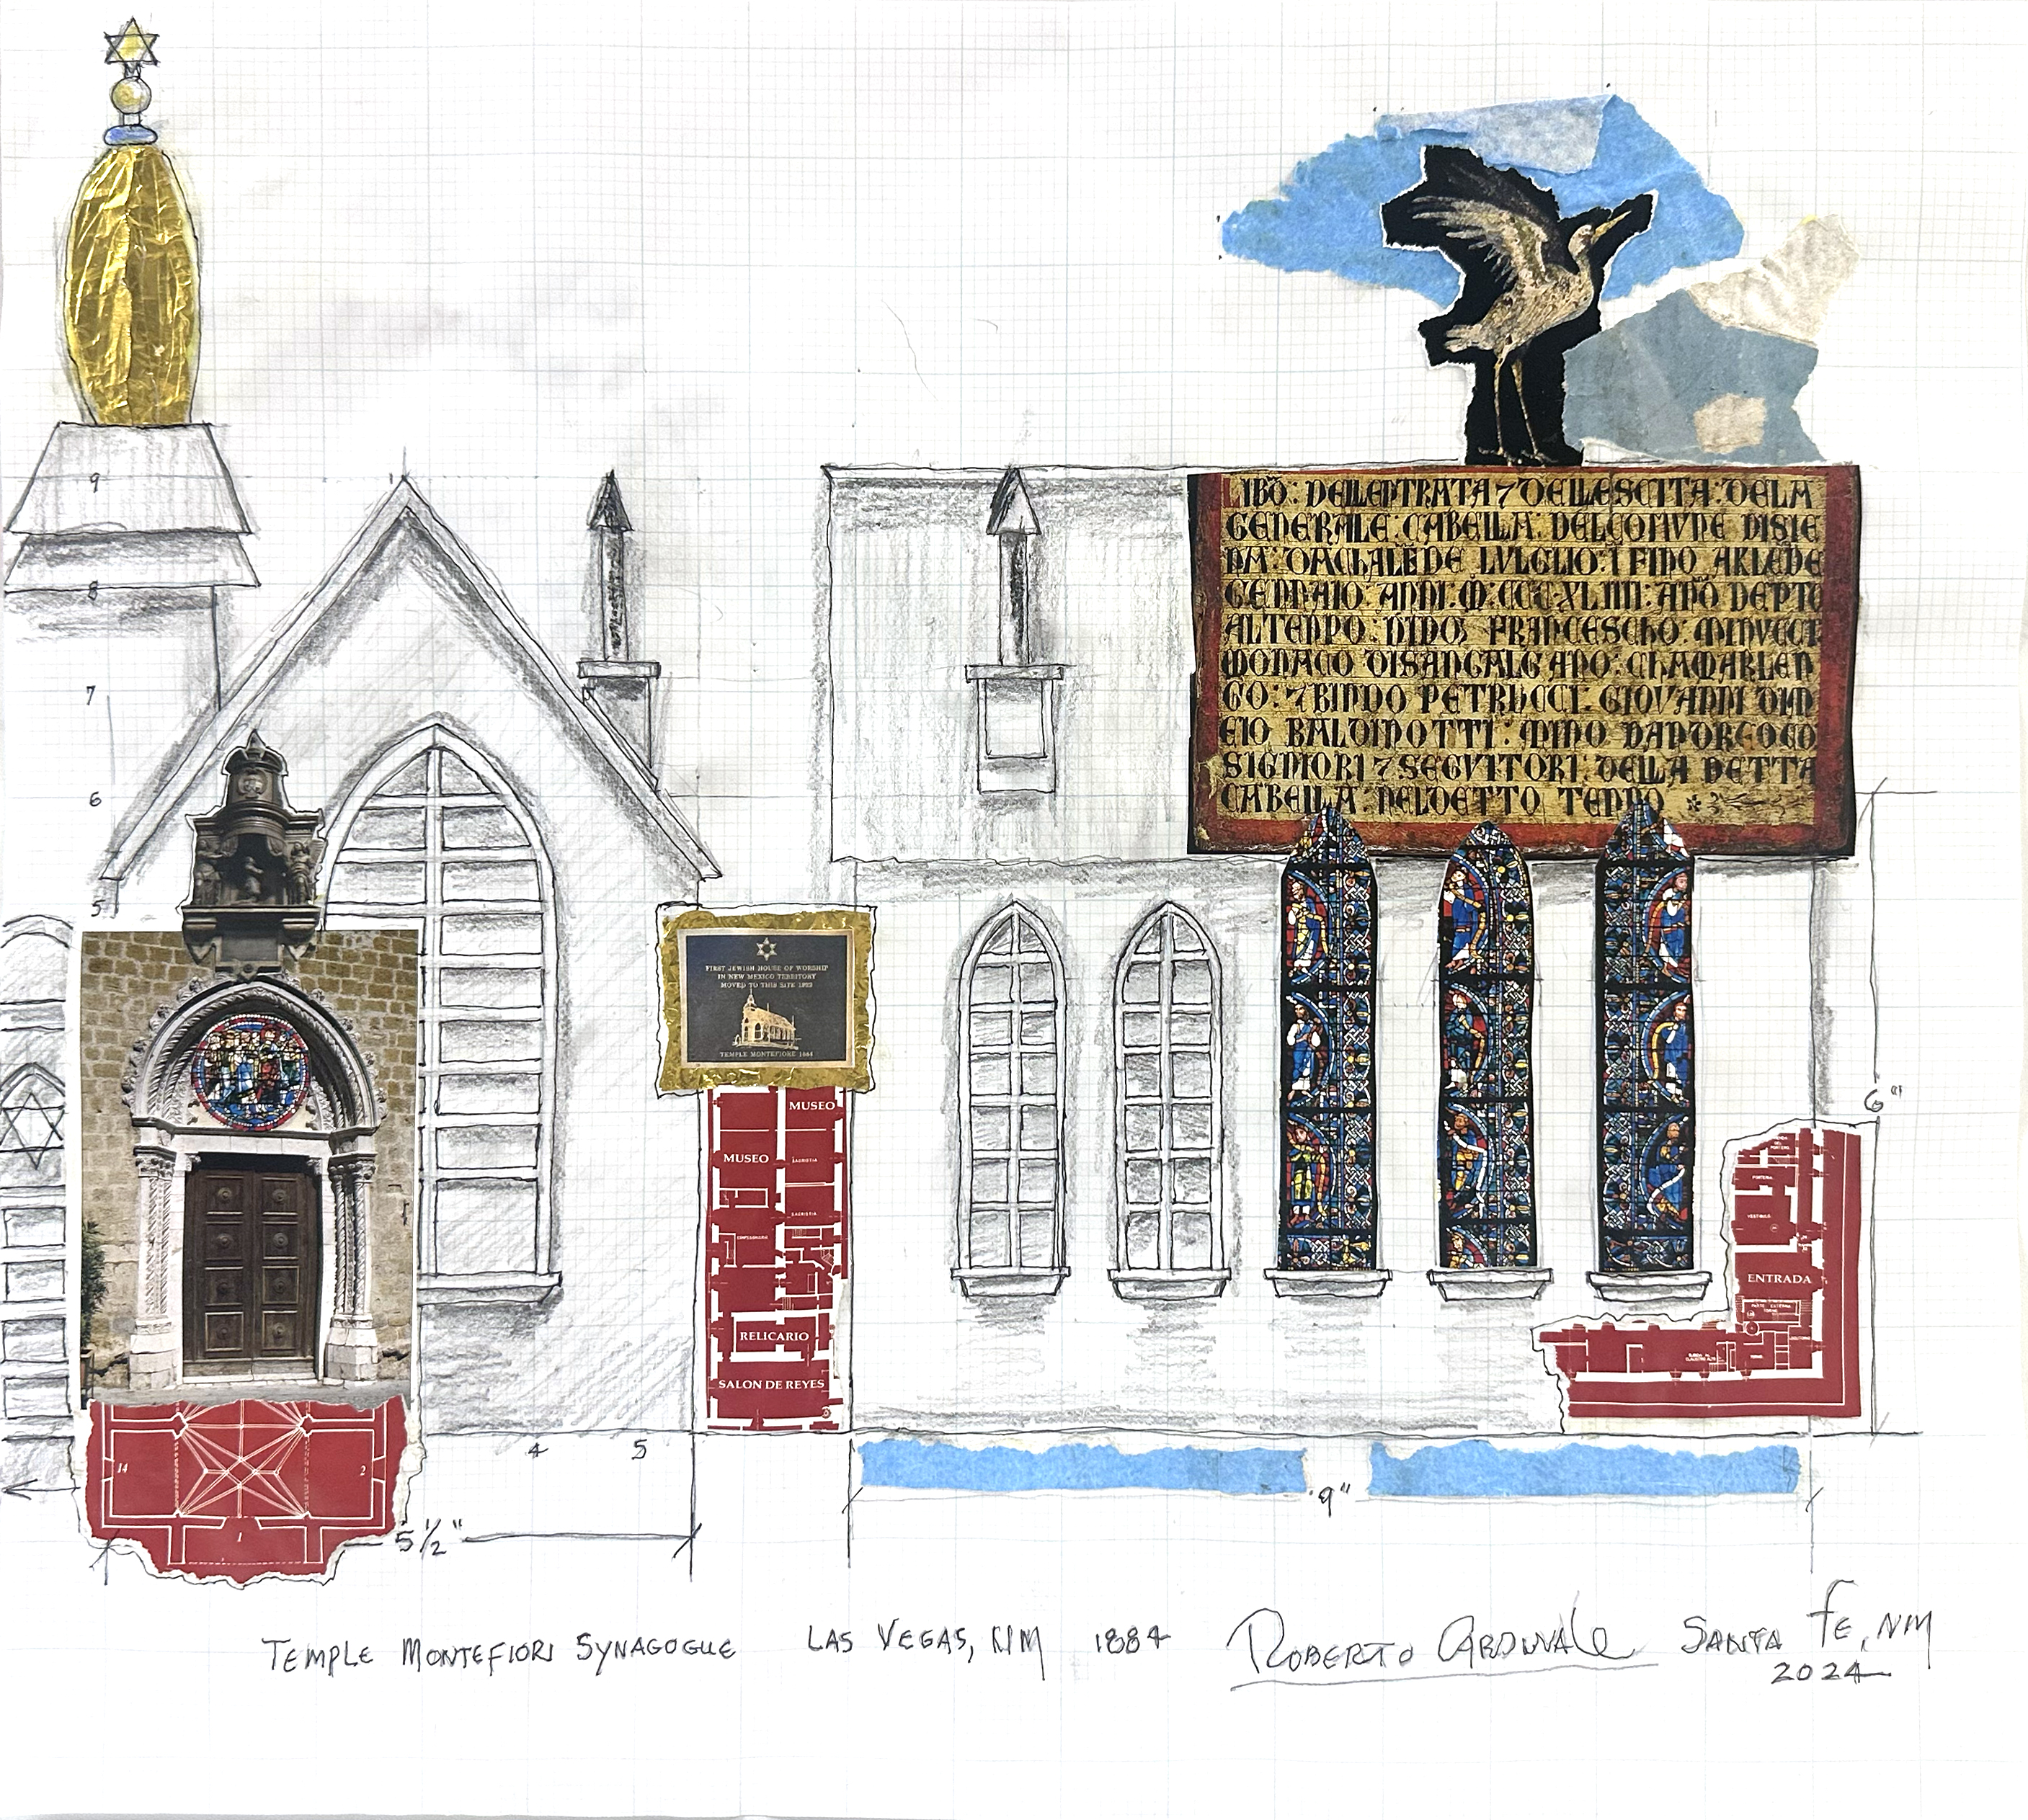 9
8
7
6
5
LIBO: DELLENTRATA 7 DELLESCITA: DELA
GENERALE: CABELLA: DELCOMUNE DISIE
NA: DACHALENDE LULGLIO: I FINO AKLENDE
GENNAIO: ANNI: M: CCCXLIIII: APO: DEPTO
ALTENPO: DIDO; FRANCESCHO: MINUCCI
MONACO DISANGALGANO: CHAMARLEN
GO: 7 BINDO PETRUCCI: GIOVANNI DIM
EIO BALDINOTTI: MINO DANDREOCO
SIGNIORI 7 SEGUITORI: DELLA DETTA
CABELLA: NELDETTO TENPO
FIRST JEWISH HOUSE OF WORSHIP
IN NEW MEXICO TERRITORY
MOVED TO THIS SITE 1922
TEMPLE MONTEFIORE 1884
MUSEO
MUSEO
SACRISTIA
SACRISTIA
CONFESIONARIO
RELICARIO
SALON DE REYES
6"
PORTERIA
VESTIBULO
ENTRADA
4 5
14 2
1
5 1/2"
9"
TEMPLE MONTEFIORI SYNAGOGUE LAS VEGAS, NM 1884 ROBERTO CARDINALE SANTA FE, NM
2024